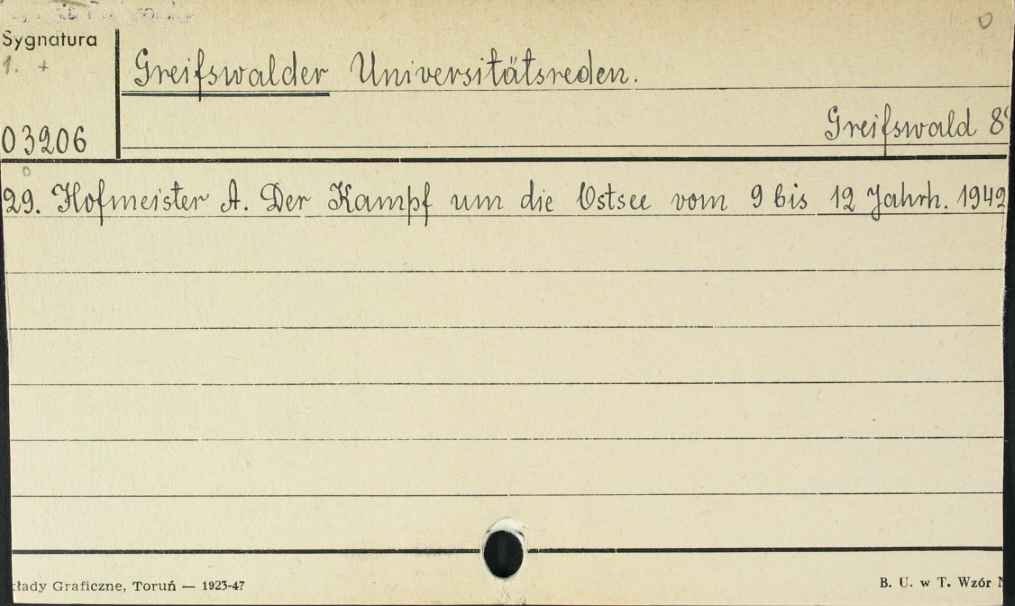 Sygnatura
1. +
03206
Greifswalder Universitätsreden.
Greifswald 8°
29. Hofmeister A. Der Kampf um die Ostsee vom 9 bis 12 Jahrh. 1942
Graficzne, Toruń — 1923-47
B. U. w T. Wzór